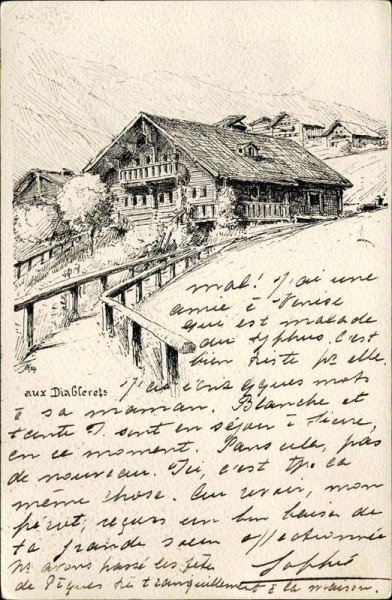 aux Diablerets
mal! J'ai une
amie à Venise
qui est malade
du typhus. C'est
bien triste pr elle.
qques mots
à sa maman. Blanche et
tante J. sont en séjour à
en ce moment. Sans cela, pas
de nouveau. Ici, c'est tjrs la
même chose. Au revoir, mon
reçois un bon baiser de
ta grande soeur affectionnée
Ns avons passé les fêtes Sophie
de Pâques très tranquillement à la maison.